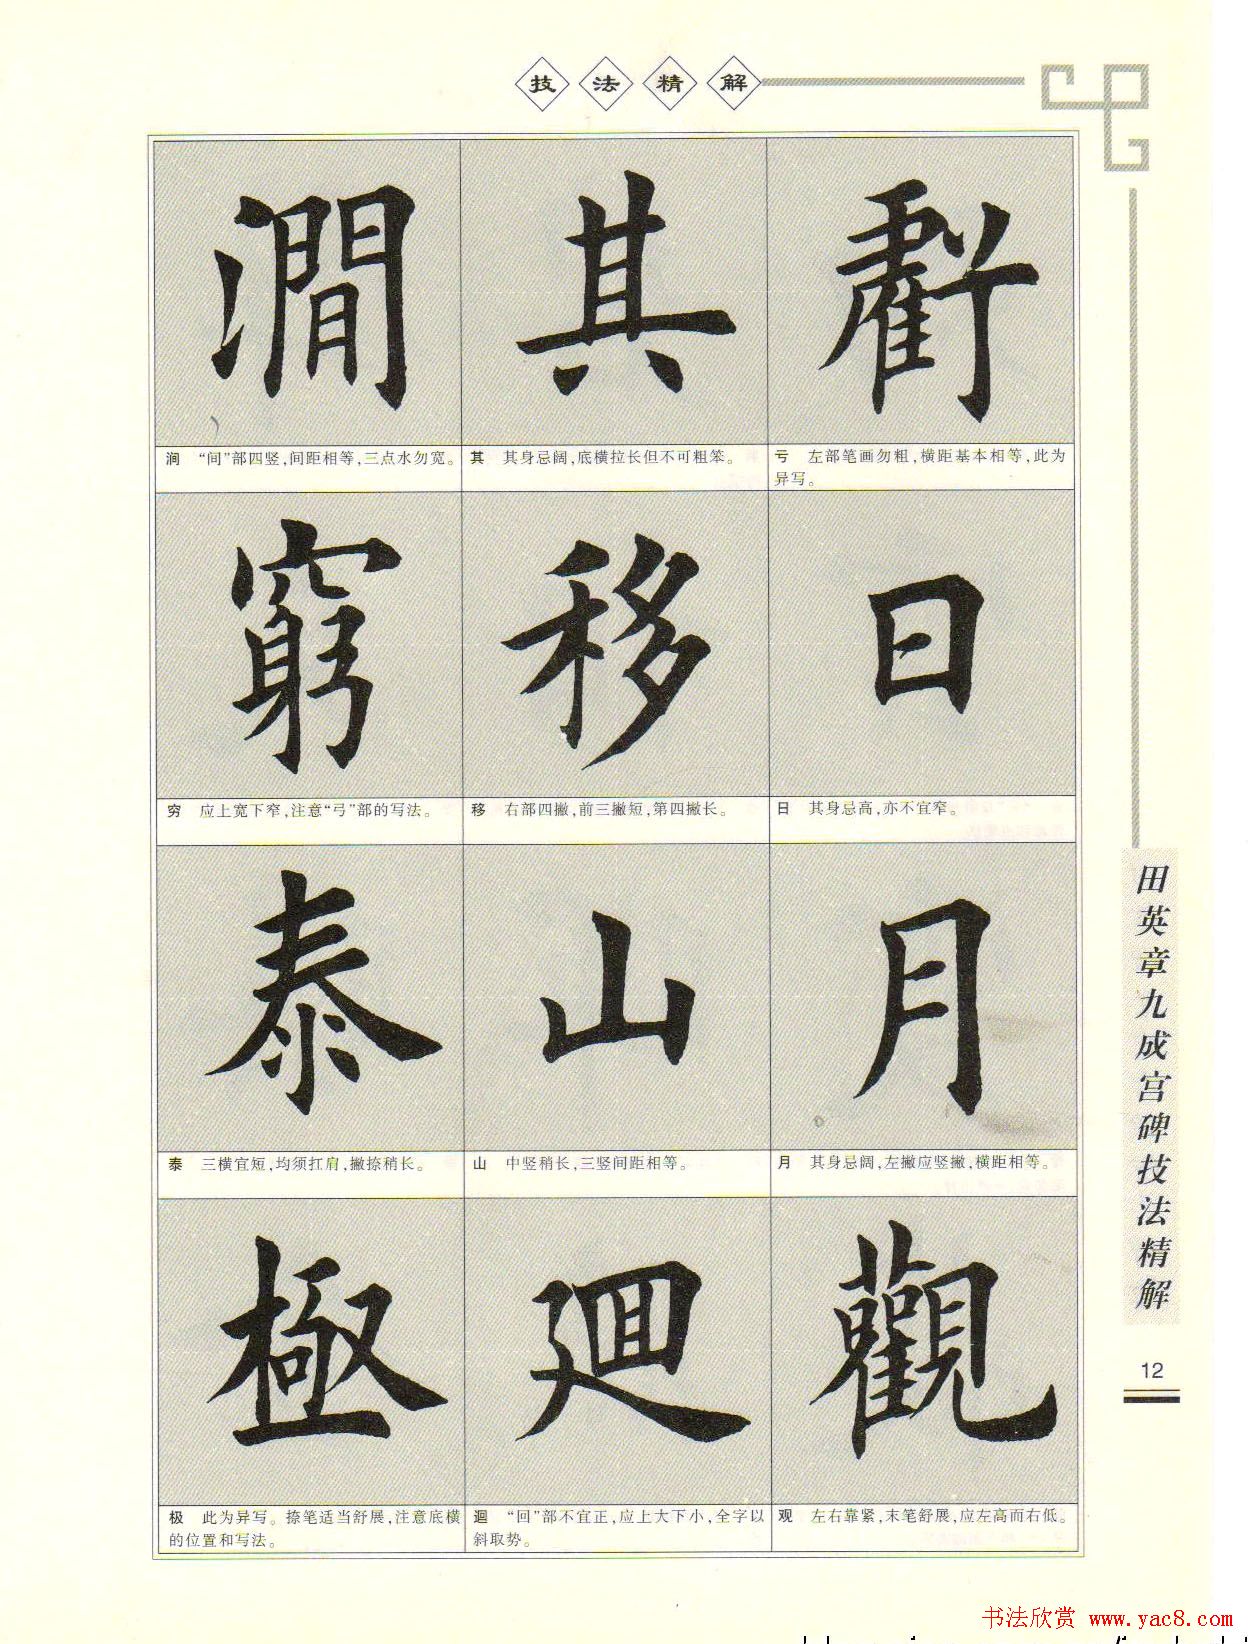 技法精解
澗 其 虧
涧 “间”部四竖,间距相等,三点水勿宽。
其 其身忌阔,底横拉长但不可粗笨。
亏 左部笔画勿粗,横距基本相等,此为
异写。
窮 移 日
穷 应上宽下窄,注意“弓”部的写法。
移 右部四撇,前三撇短,第四撇长。
日 其身忌高,亦不宜窄。
泰 山 月
泰 三横宜短,均须扛肩,撇捺稍长。
山 中竖稍长,三竖间距相等。
月 其身忌阔,左撇应竖撇,横距相等。
極 迴 觀
极 此为异写。捺笔适当舒展,注意底横
的位置和写法。
迴 “回”部不宜正,应上大下小,全字以
斜取势。
观 左右靠紧,末笔舒展,应左高而右低。
田英章九成宫碑技法精解
12
书法欣赏 www.yac8.com